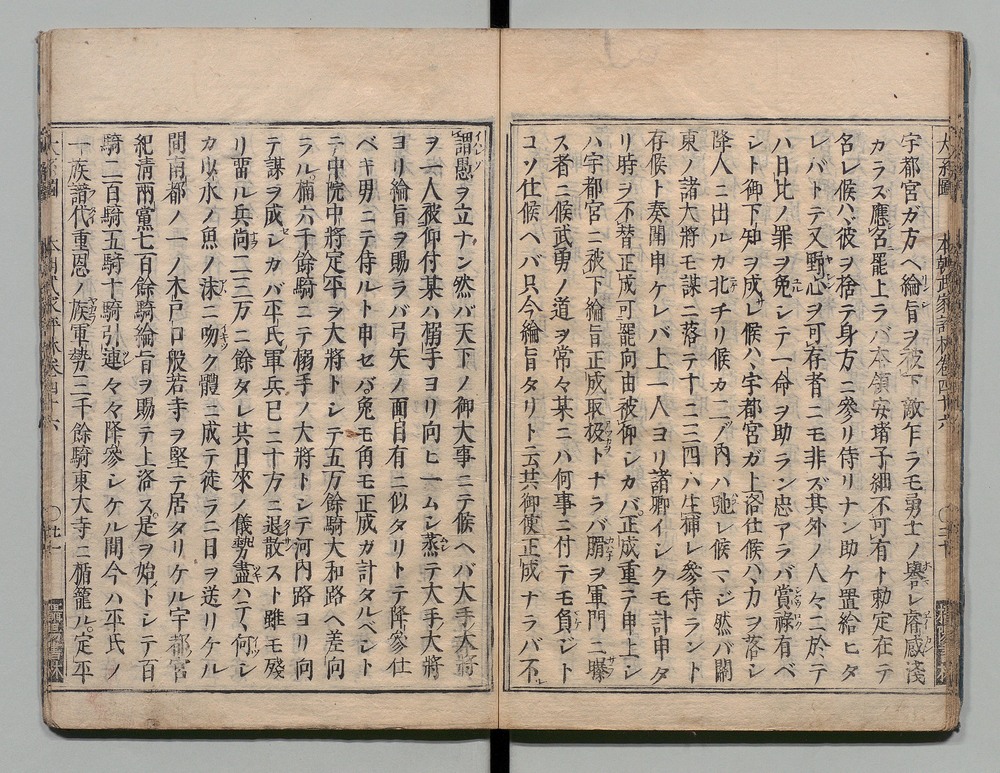 宇都宮ガ方ヘ綸旨ヲ被下敵乍ラモ勇士ノ譽レ感淺
カラズ應名罷上ラバ本領安堵子細不可有ト勅定在テ
名レ候ハバ彼ヲ捨テ身方ニ參リ侍リナン助ケ置給ヒタ
レバトテ又野心ヲ可存者ニモ非ズ其外ノ人々ニ於テ
ハ日比ノ罪ヲ免シテ一命ヲ助ラン忠アラバ賞祿有ベ
シト御下知ヲ成レ候ハバ宇都宮ガ上洛仕候ハバ力ヲ落シ
降人ニ出ルカ北チリ候カ二ノ内ハ弛レ候マジ然バ關
東ノ諸大將モ謀ニ落テ十ニ三四ハ生捕レ參侍ラント
存候ト奏聞申ケレバ上一人ヨリ諸卿イシクモ計申タ
リ時ヲ不替正成可罷向由被仰シカバ正成重テ申上シ
ハ宇都宮ニ被下綸旨正成取扱トナラバ膓ヲ軍門ニ曝
ス者ニ候武勇ノ道ヲ常々某ニハ何事ニ付テモ負ジト
コソ仕候ヘバ只今綸旨タリト云共御使正成ナラバ不
本朝武家評林卷四十六
三十
謂愚ヲ立ナン然バ天下ノ御大事ニテ候ヘバ大手大將
ヲ一人被仰付某ハ搦手ヨリ向ヒ一ムシ蒸テ大手大將
ヨリ綸旨ヲ賜ラバ弓矢ノ面目有ニ似タリトテ降參仕
ベキ男ニテ侍ルト申セバ兔モ角モ正成ガ計タルベシト
テ中院中將定平ヲ大將トシテ五万餘騎大和路ヘ差向
ラル楠六千餘騎ニテ搦手ノ大將トシテ河内路ヨリ向
テ謀ヲ成シカバ平氏軍兵已ニ十方ニ退散スト雖モ殘
リ留ル兵尚二三万ニ餘タレ共日來ノ儀勢盡ハテ何シ
カ以水ノ魚ノ沫ニ吻ク體ニ成テ徒ラニ日ヲ送リケル
間南都ノ一ノ木戸口般若寺ヲ堅テ居タリケル宇都宮
紀淸兩黨七百餘騎綸旨ヲ賜テ上洛ス是ヲ始トシテ百
騎二百騎五騎十騎引連々々降參シケル間今ハ平氏ノ
一族譜代重恩ノ族軍勢三千餘騎東大寺ニ楯籠ル定平
本朝武家評林卷四十六
卅一